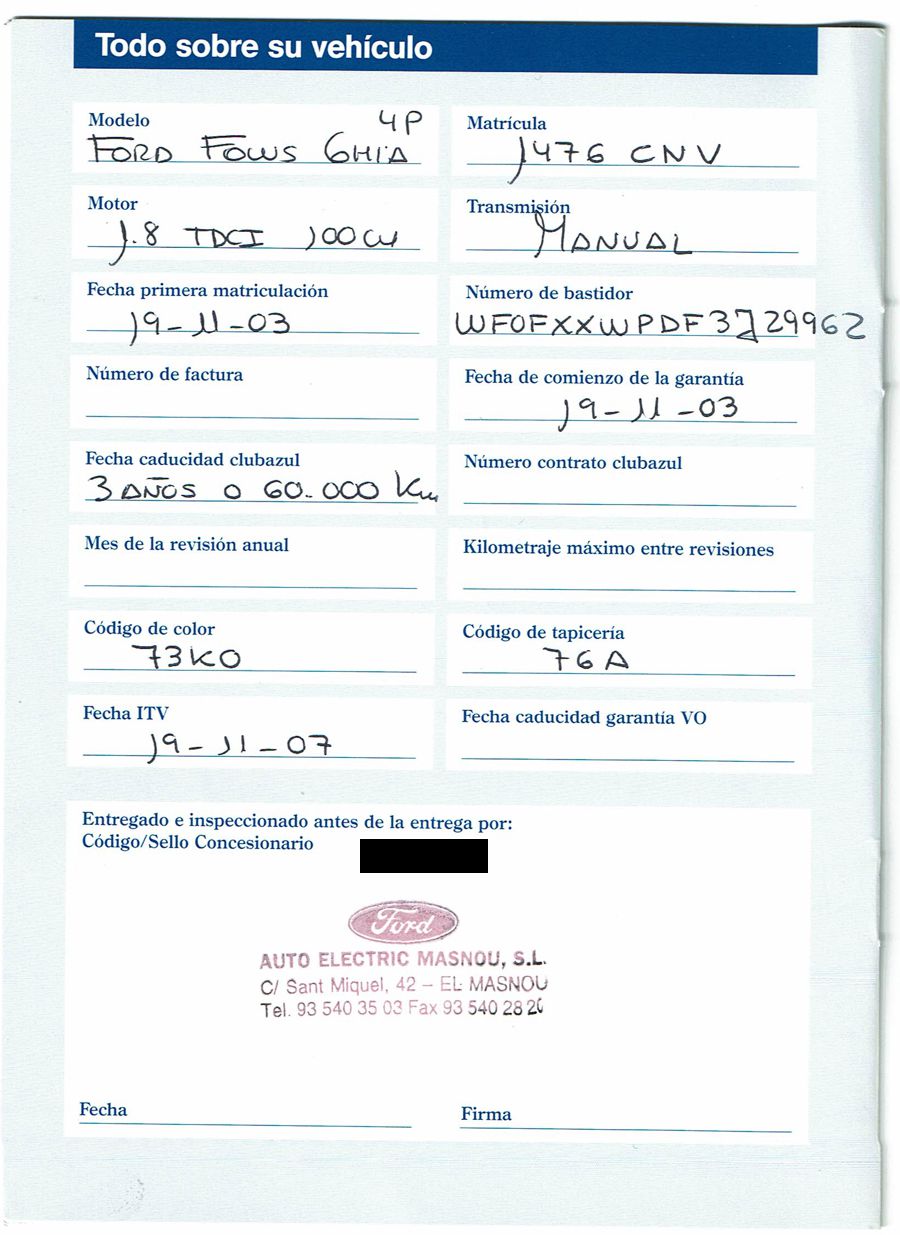 Todo sobre su vehículo
Modelo
4P
FORD FOCUS GHIA
Matrícula
1476 CNV
Motor
1.8 TDCI 100CV
Transmisión
MANUAL
Fecha primera matriculación
19-11-03
Número de bastidor
WF0FXXWPDF3J29962
Número de factura
Fecha de comienzo de la garantía
19-11-03
Fecha caducidad clubazul
3 AÑOS O 60.000 Km
Número contrato clubazul
Mes de la revisión anual
Kilometraje máximo entre revisiones
Código de color
73KO
Código de tapicería
76A
Fecha ITV
19-11-07
Fecha caducidad garantía VO
Entregado e inspeccionado antes de la entrega por:
Código/Sello Concesionario
Ford
AUTO ELECTRIC MASNOU, S.L.
C/ Sant Miquel, 42 – EL MASNOU
Tel. 93 540 35 03 Fax 93 540 28 20
Fecha
Firma